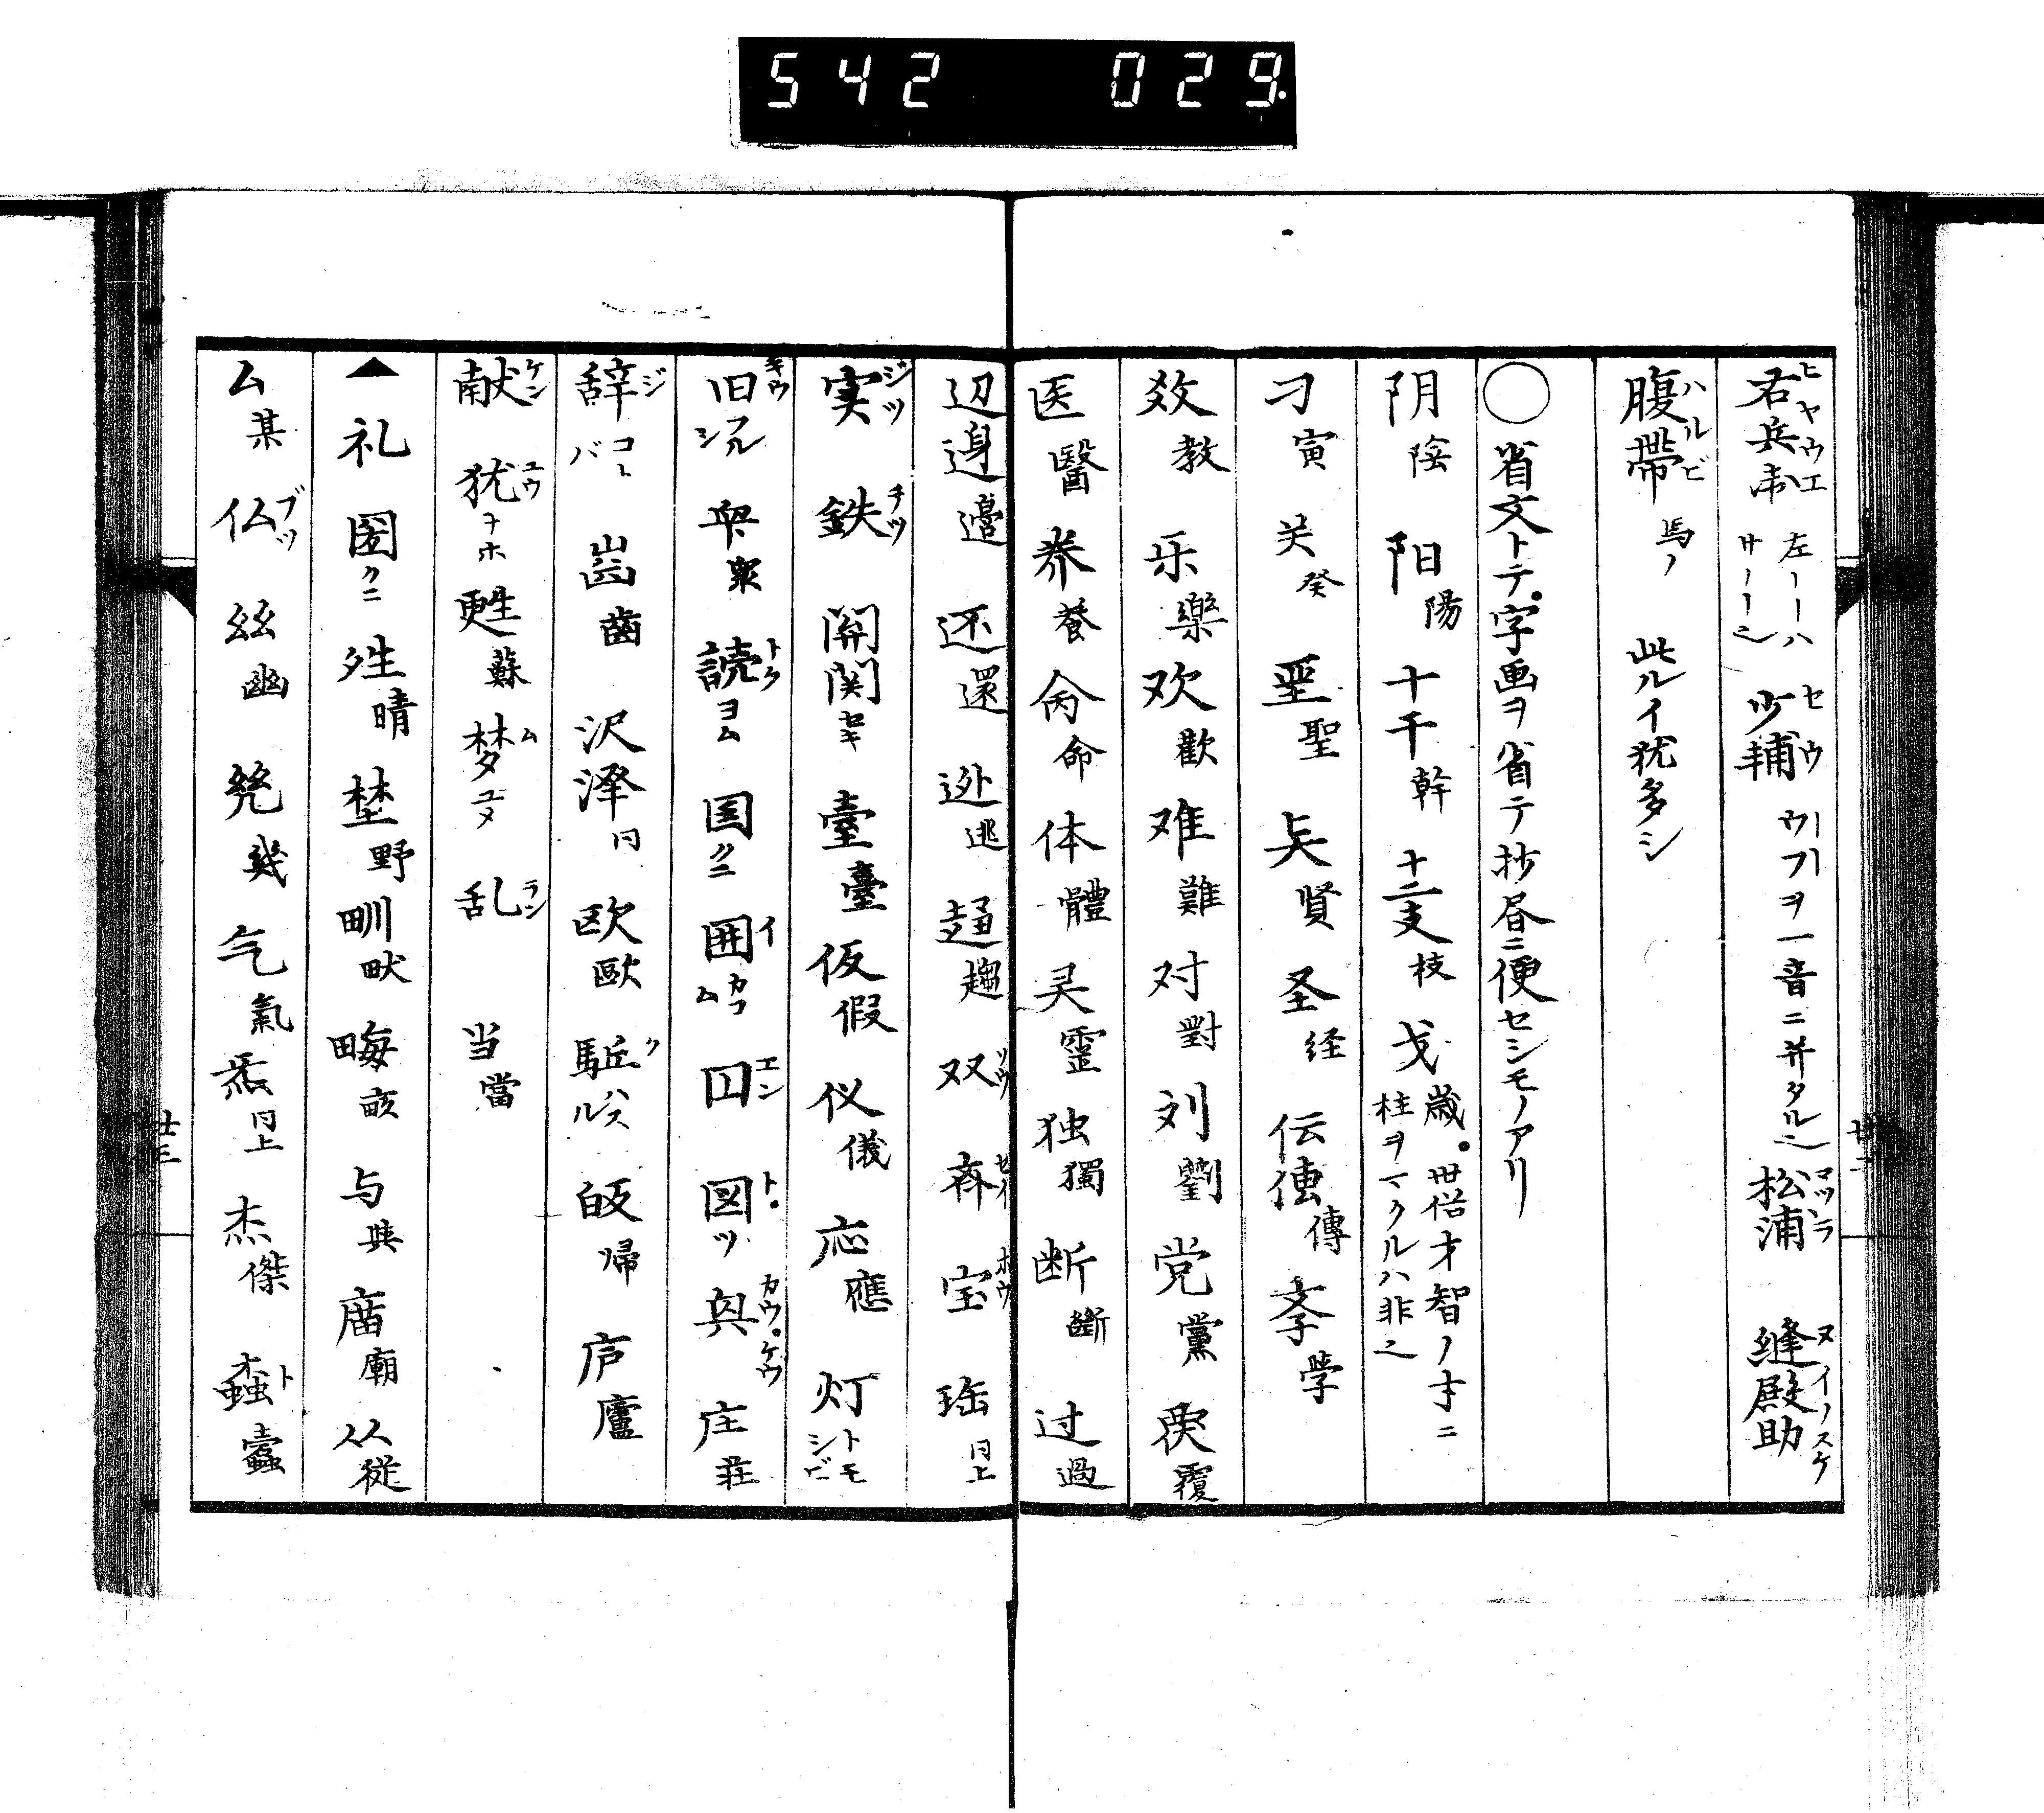 542 029.
右兵衛 ヒヤウエ 左ーーハサーーー也 少輔 セウ ーウフーヲ一音ニ并タル也 松浦 マツラ 縫殿助 ヌイノスケ
腹帶 ハルビ 馬ノ 此ルイ犹多シ
〇 省文トテ字画ヲ省テ抄昼ニ便セシモノアリ
阴 陰 阳 陽 十干 幹 十二支 枝 戈 歳 世俗才智ノ才ニ柱ヲーマクルハ非也
刁 寅 关 癸 聖 聖 賢 圣 経 伝 傳 斈 学
效 教 乐 樂 欢 歡 难 難 对 對 刘 劉 党 黨 覆
医 醫 养 養 肏 命 体 體 灵 霊 独 獨 断 斷 过 過
辺 边 邉 还 還 迯 逃 趋 趨 双 ソウ 斉 セイ 宝 ホウ 珤 同上
実 ジツ 鉄 テツ 関 関 セキ 臺 臺 仮 假 仪 儀 応 應 灯 トモシビ
旧 キウ フルシ 衆 読 トク ヨム 国 クニ 囲 イ カコム 囗 エン 図 ト ツ カウ・ケウ 庄 荘
辞 ジ コトバ 歯 齒 沢 泽 同 欧 歐 駈 ク ハスル 皈 帰 庐 廬
献 ケン 犹 ユウ ナホ 甦 蘇 梦 ム ユメ 乱 ラン 当 當
▲ 礼 圀 クニ 夝 晴 埜 野 甽 畎 畮 畝 与 與 庿 廟 从 從
厶 某 仏 ブツ 丝 幽 幾 气 氣 炁 同上 杰 傑 螙 ト 蠹
廿二
廿三